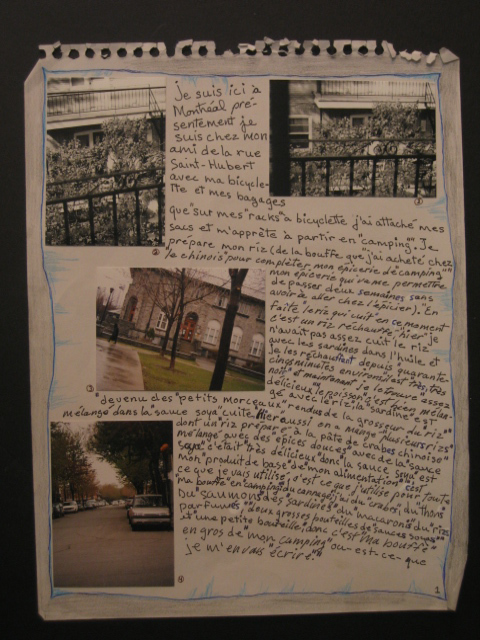 Je suis ici à
Montréal pré-
sentement je
suis chez mon
ami de la rue
Saint-Hubert
avec ma bicycle-
tte et mes bagages
que "sur mes "racks" à bicyclette j'ai attaché mes
sacs et m'apprête à partir en "camping". Je
prépare mon riz (de la bouffe que j'ai acheté chez
"le chinois" pour compléter mon épicerie de camping""
mon épicerie qui va me permettre
de passer deux semaines sans
avoir à aller chez l'épicier). "En
faite "le riz qui cuit" en ce moment
c'est un riz réchauffé, hier je
n'avait pas assez cuit le riz
avec les sardines dans l'huile et
je les réchauffent depuis quarante-
cinq minutes environ est très, très
hot" et maintenant je le trouve assez
délicieux, le poisson c'est bien mélan-
gé avec le riz, la "sardine" est
"devenu des "petits morceaux" rendus de la grosseur du riz""
mélangé dans la "sauce soya" cuite. Hier aussi on a mangé plusieurs riz"
dont un riz préparé" à la pâte de crabes chinoise"
mélangé" avec des épices douces" avec de la "sauce
soya". c'était "très délicieux" dans la sauce soya" est
mon "produit de base" de mon alimentation"
ce que je vais utilisé, c'est ce que j'utilise pour toute
"ma bouffe" en camping
Du "saumon" des "sardines" du "macaroni" du "riz
parfumés", deux grosses bouteilles de "sauces soyas""
et une petite bouteille, donc c'est "Ma bouffe"
en gros de "mon camping" ou-est-ce- que
je m'en vais "écrire".
1
2
3
4